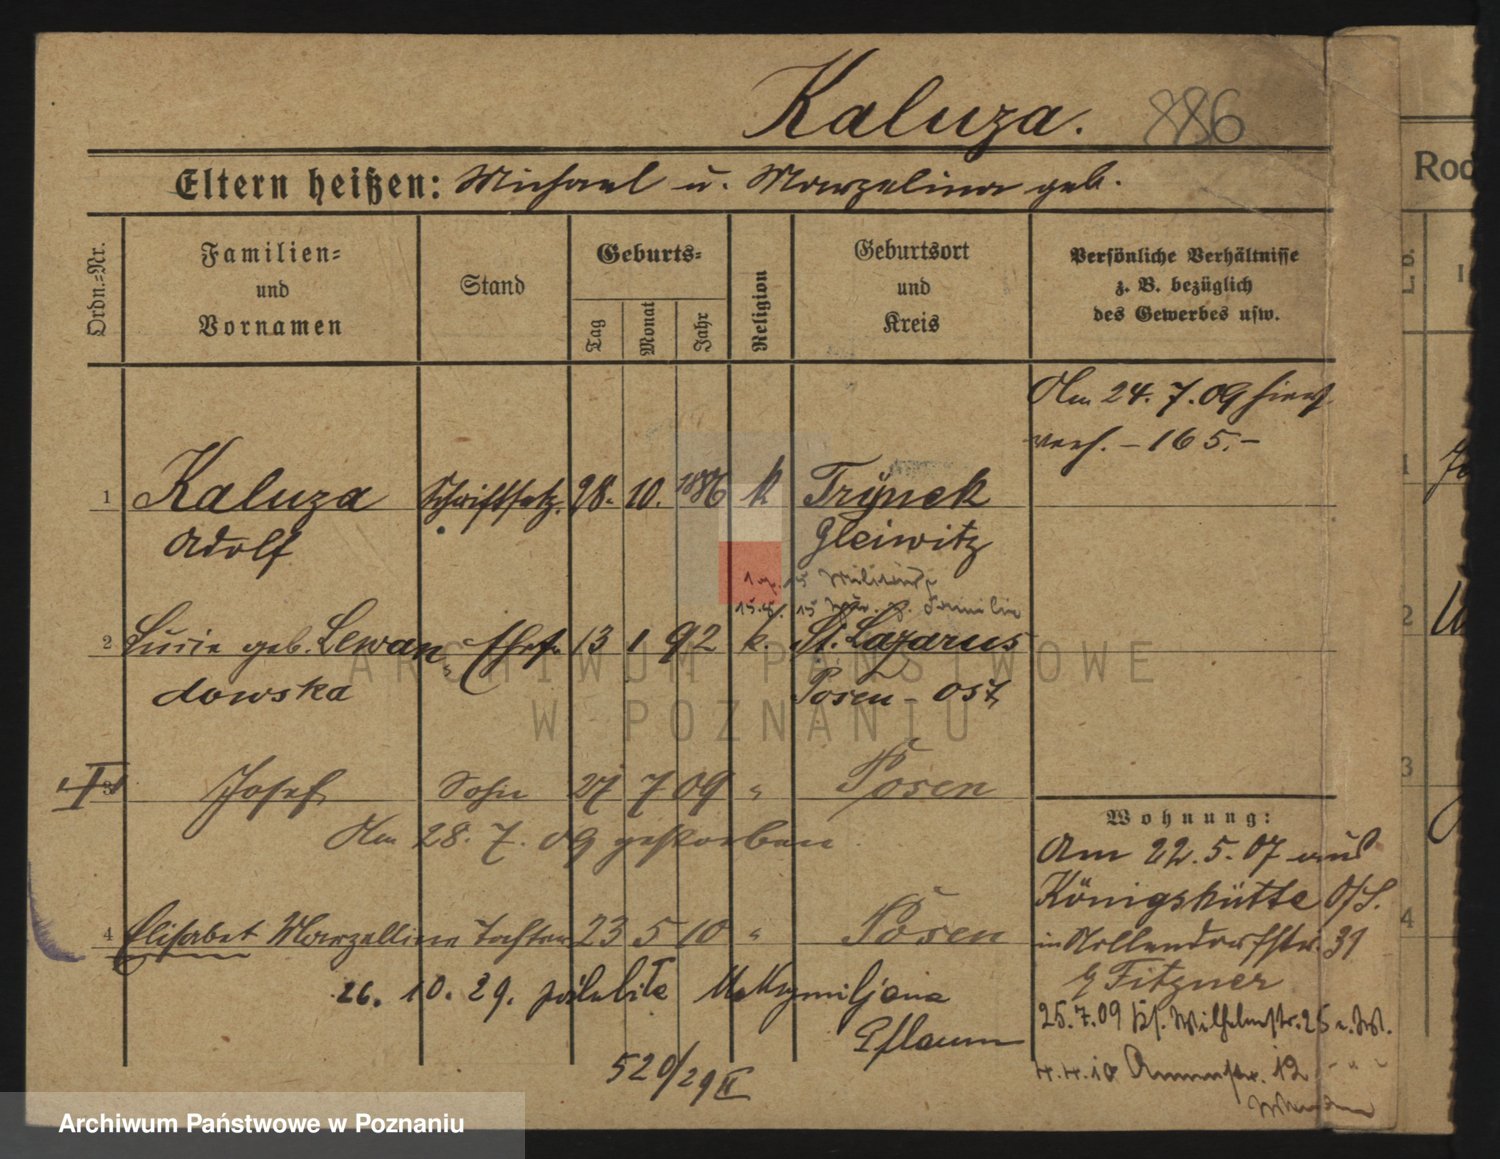 Kaluza. 886
Eltern heißen: Michael u. Marzelina geb.
Ordn.=Nr.
Familien=
und
Vornamen
Stand
Geburts=
Tag
Monat
Jahr
Religion
Geburtsort
und
Kreis
Persönliche Verhältnisse
z. B. bezüglich
des Gewerbes usw.
Am 24. 7. 09 hier
verh. – 165.–
1 Kaluza Schriftsetz. 28. 10. 1886 k Trynek
Adolf Gleiwitz
15 Militär
15 Familie
2 Lucie geb. Lewan Ehefr. 13 1 92 k. St. Lazarus
dowska Posen - Ost
3 Josef Sohn 27 7 09 " Posen
Am 28. 7. 09 gestorben
4 Elisabet Marzelline Tochter 23 5 10 " Posen
26. 10. 29. poślubiła Maksymiljana
Pflaum
520/29 II
Wohnung:
Am 22. 5. 07 aus
Königshütte O/S.
in Nollendorfstr. 31
b Fitzner
25.7.09 Wilhelmstr. 25
4.4.10 12
Rod
1
2
3
4
ARCHIWUM PAŃSTWOWE
W POZNANIU
Archiwum Państwowe w Poznaniu